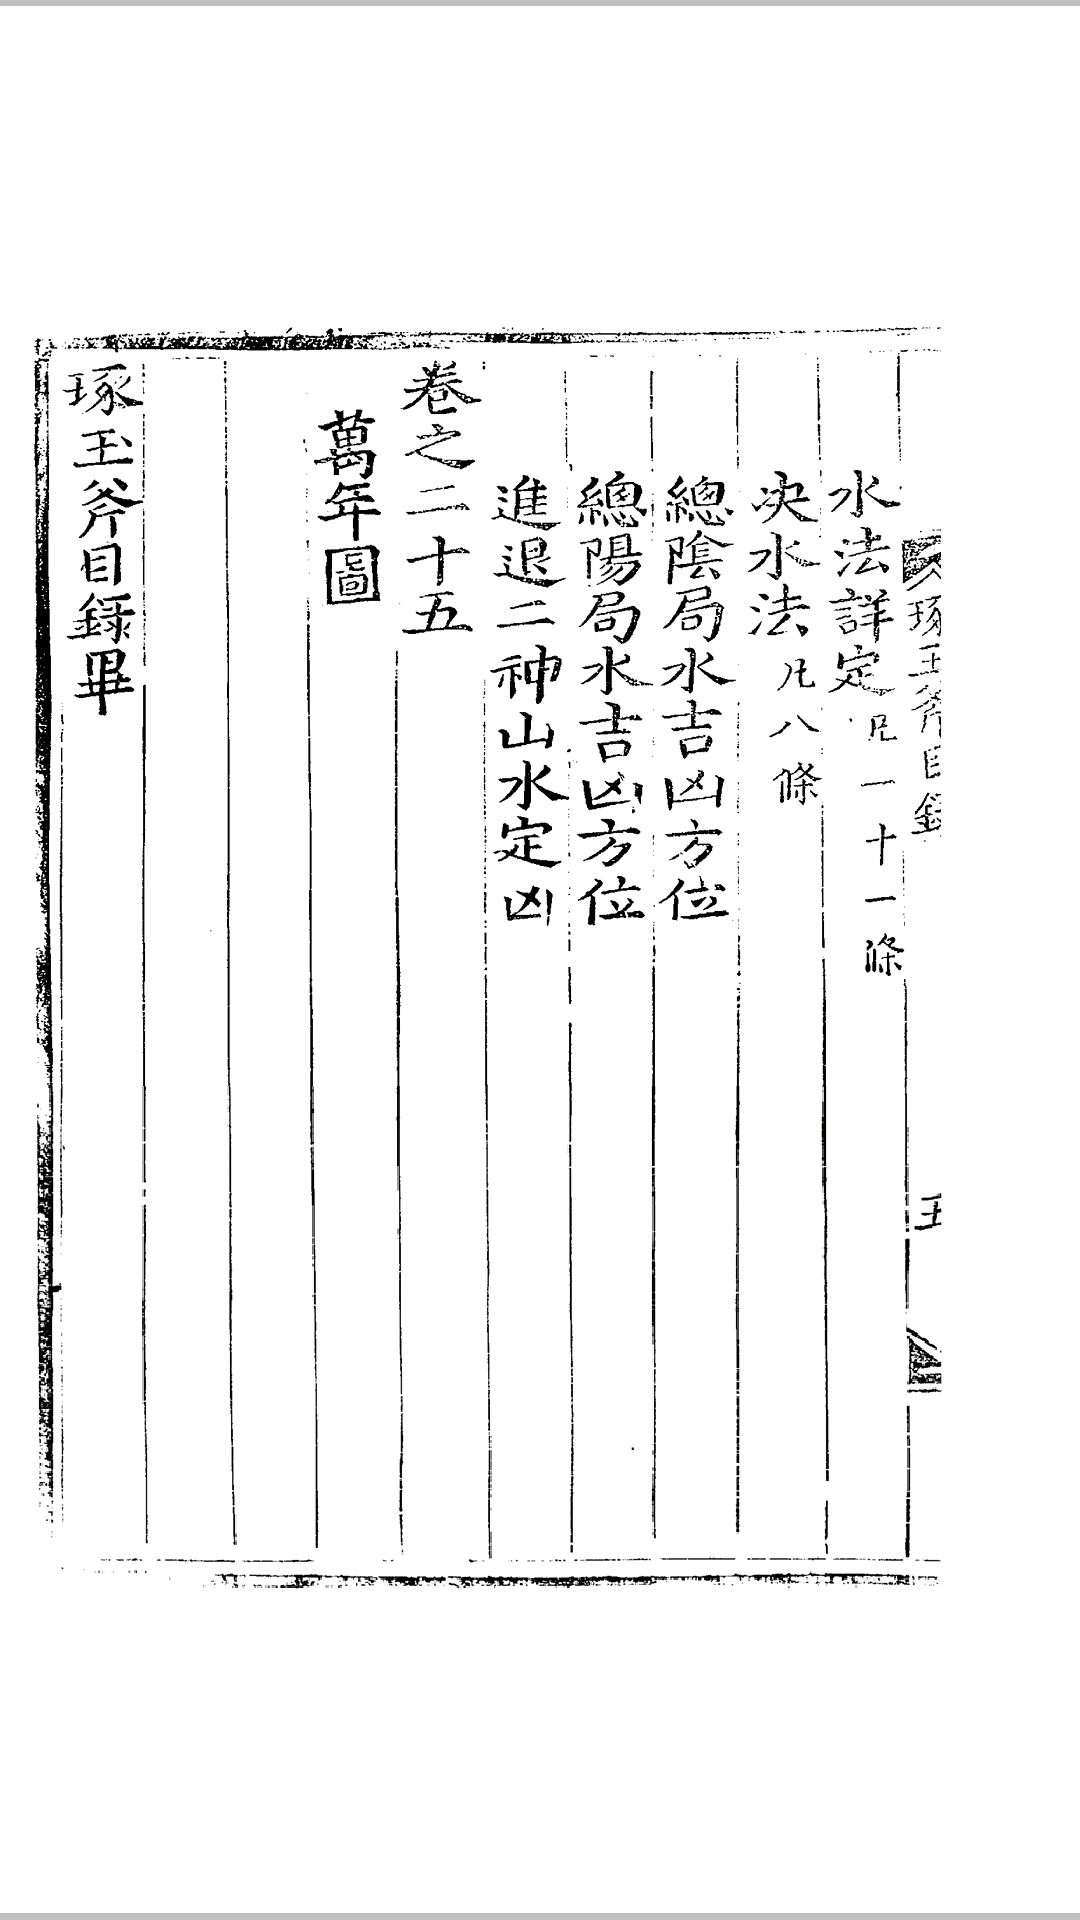 琢玉斧目録
五
水法詳定凡一十一條
决水法凡八條
總陰局水吉凶方位
總陽局水吉凶方位
進退二神山水定凶
卷之二十五
萬年圖
琢玉斧目錄畢